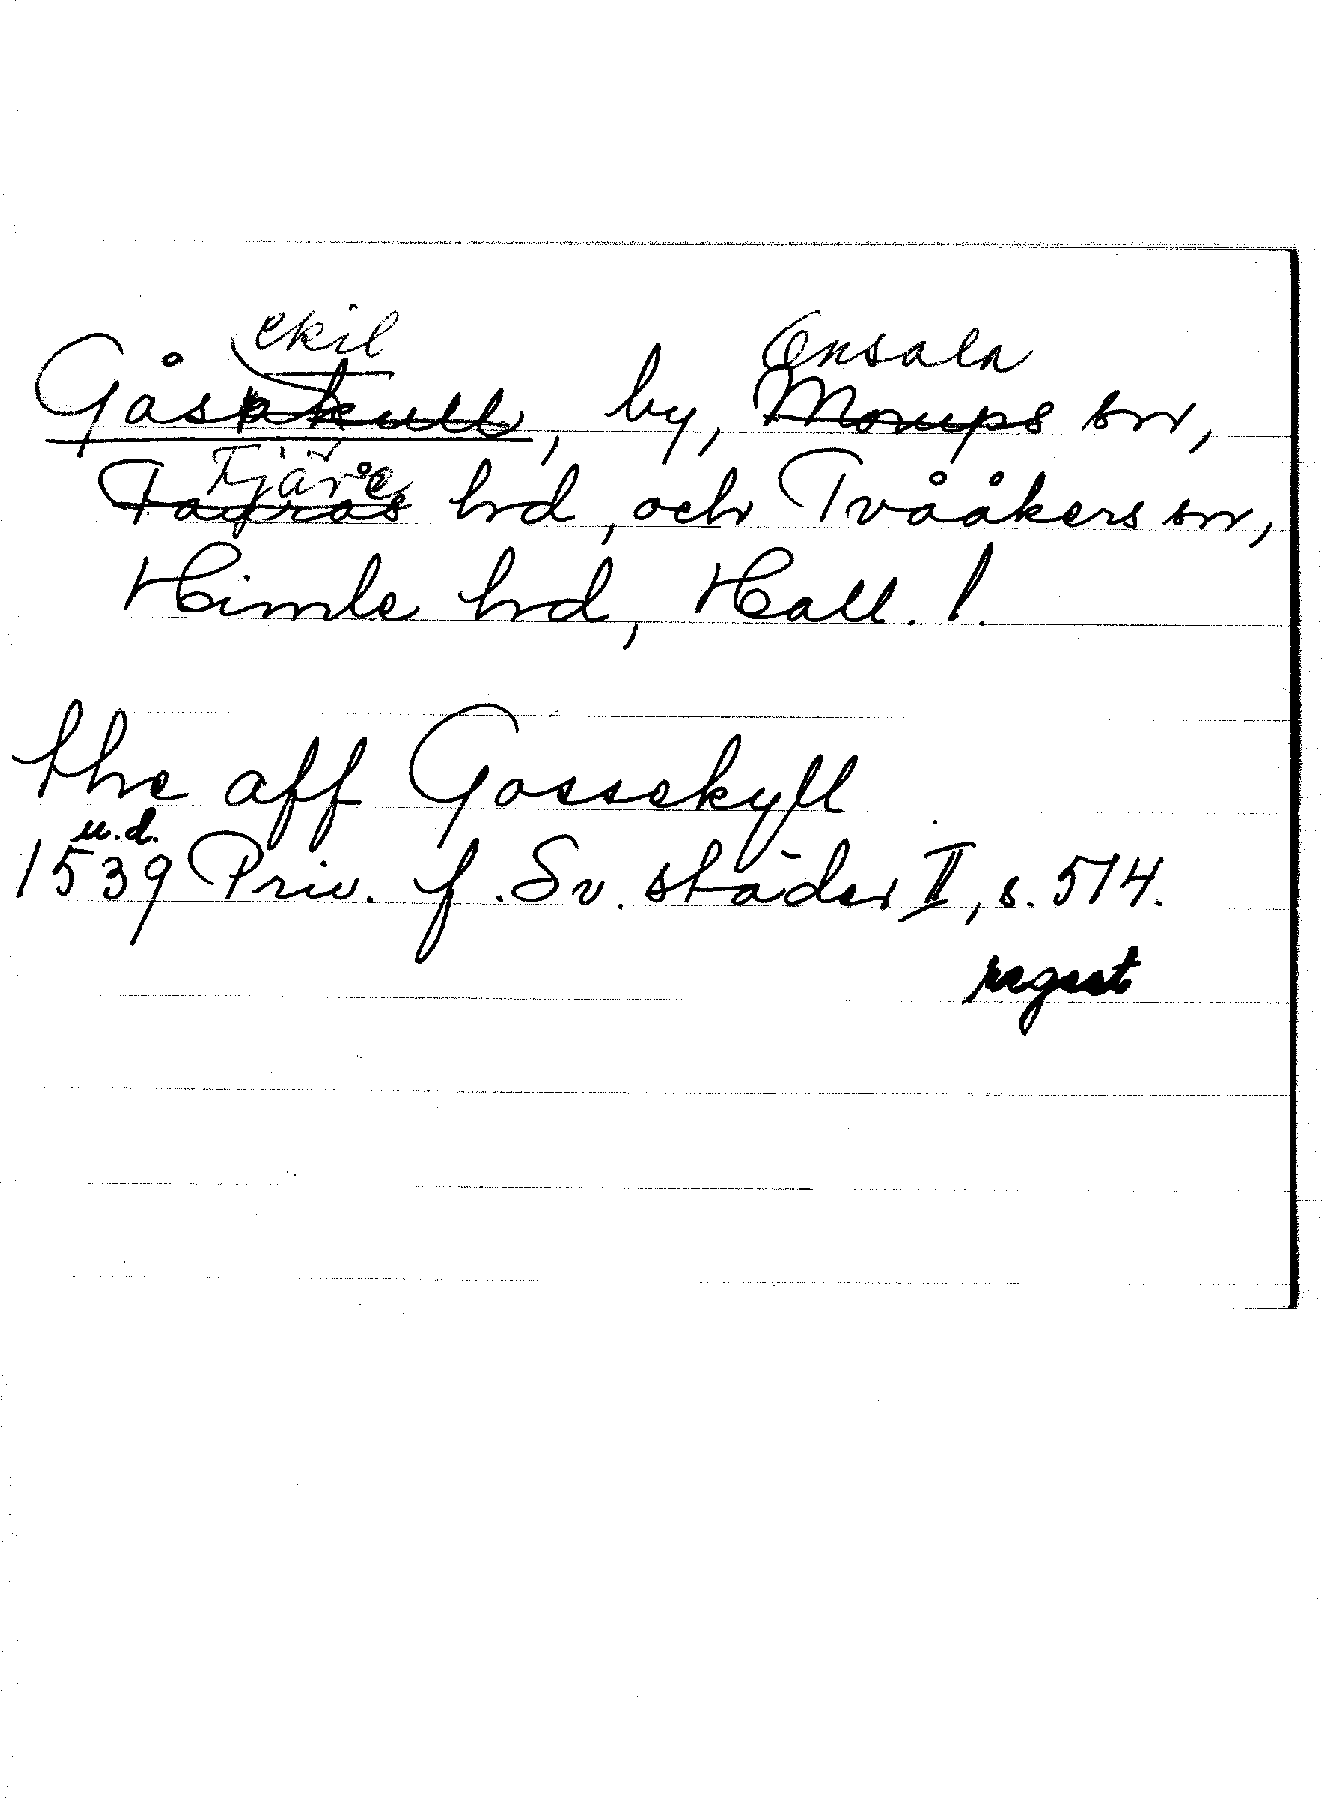 ekil Onsala
Gåsakull, by, Morups sn,
Fjäre
Faurås hd, och Tvååkers sn,
Himle hd, Hall. l.
the aff Gossekyll
u.d.
1539 Priv. f. Sv. städer II, s. 514.
regest